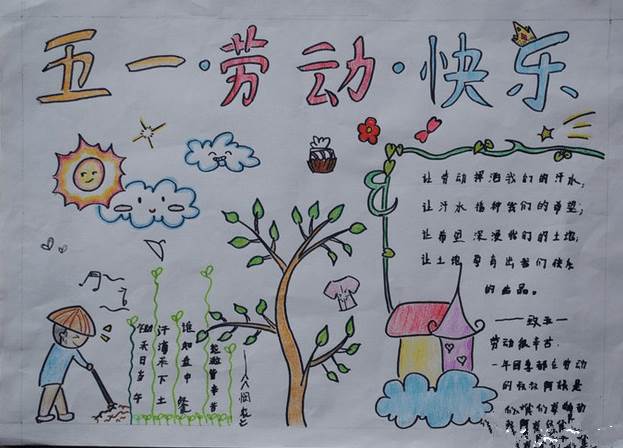 五一·劳动·快乐
让劳动挥洒我们的汗水,
让汗水播种我们的希望;
让希望浸我们的土地,
让土地孕育出我们快乐
的曲品。
——致五一
劳动最辛苦:
一年四季都在劳动
的叔叔阿姨是
你们
锄禾日当午
汗滴禾下土
谁知盘中餐
粒粒皆辛苦